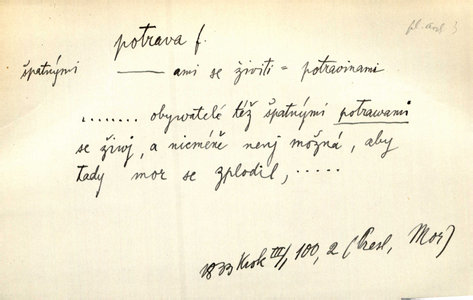 potrava f.
špatnými —— ami se živiti = potravinami
........ obywatelé též špatnými potrawami
se živj, a nicméně nenj možná, aby
tady mor se zplodil, .....
1833 Krok III/, 100, 2 (Presl, Mor)